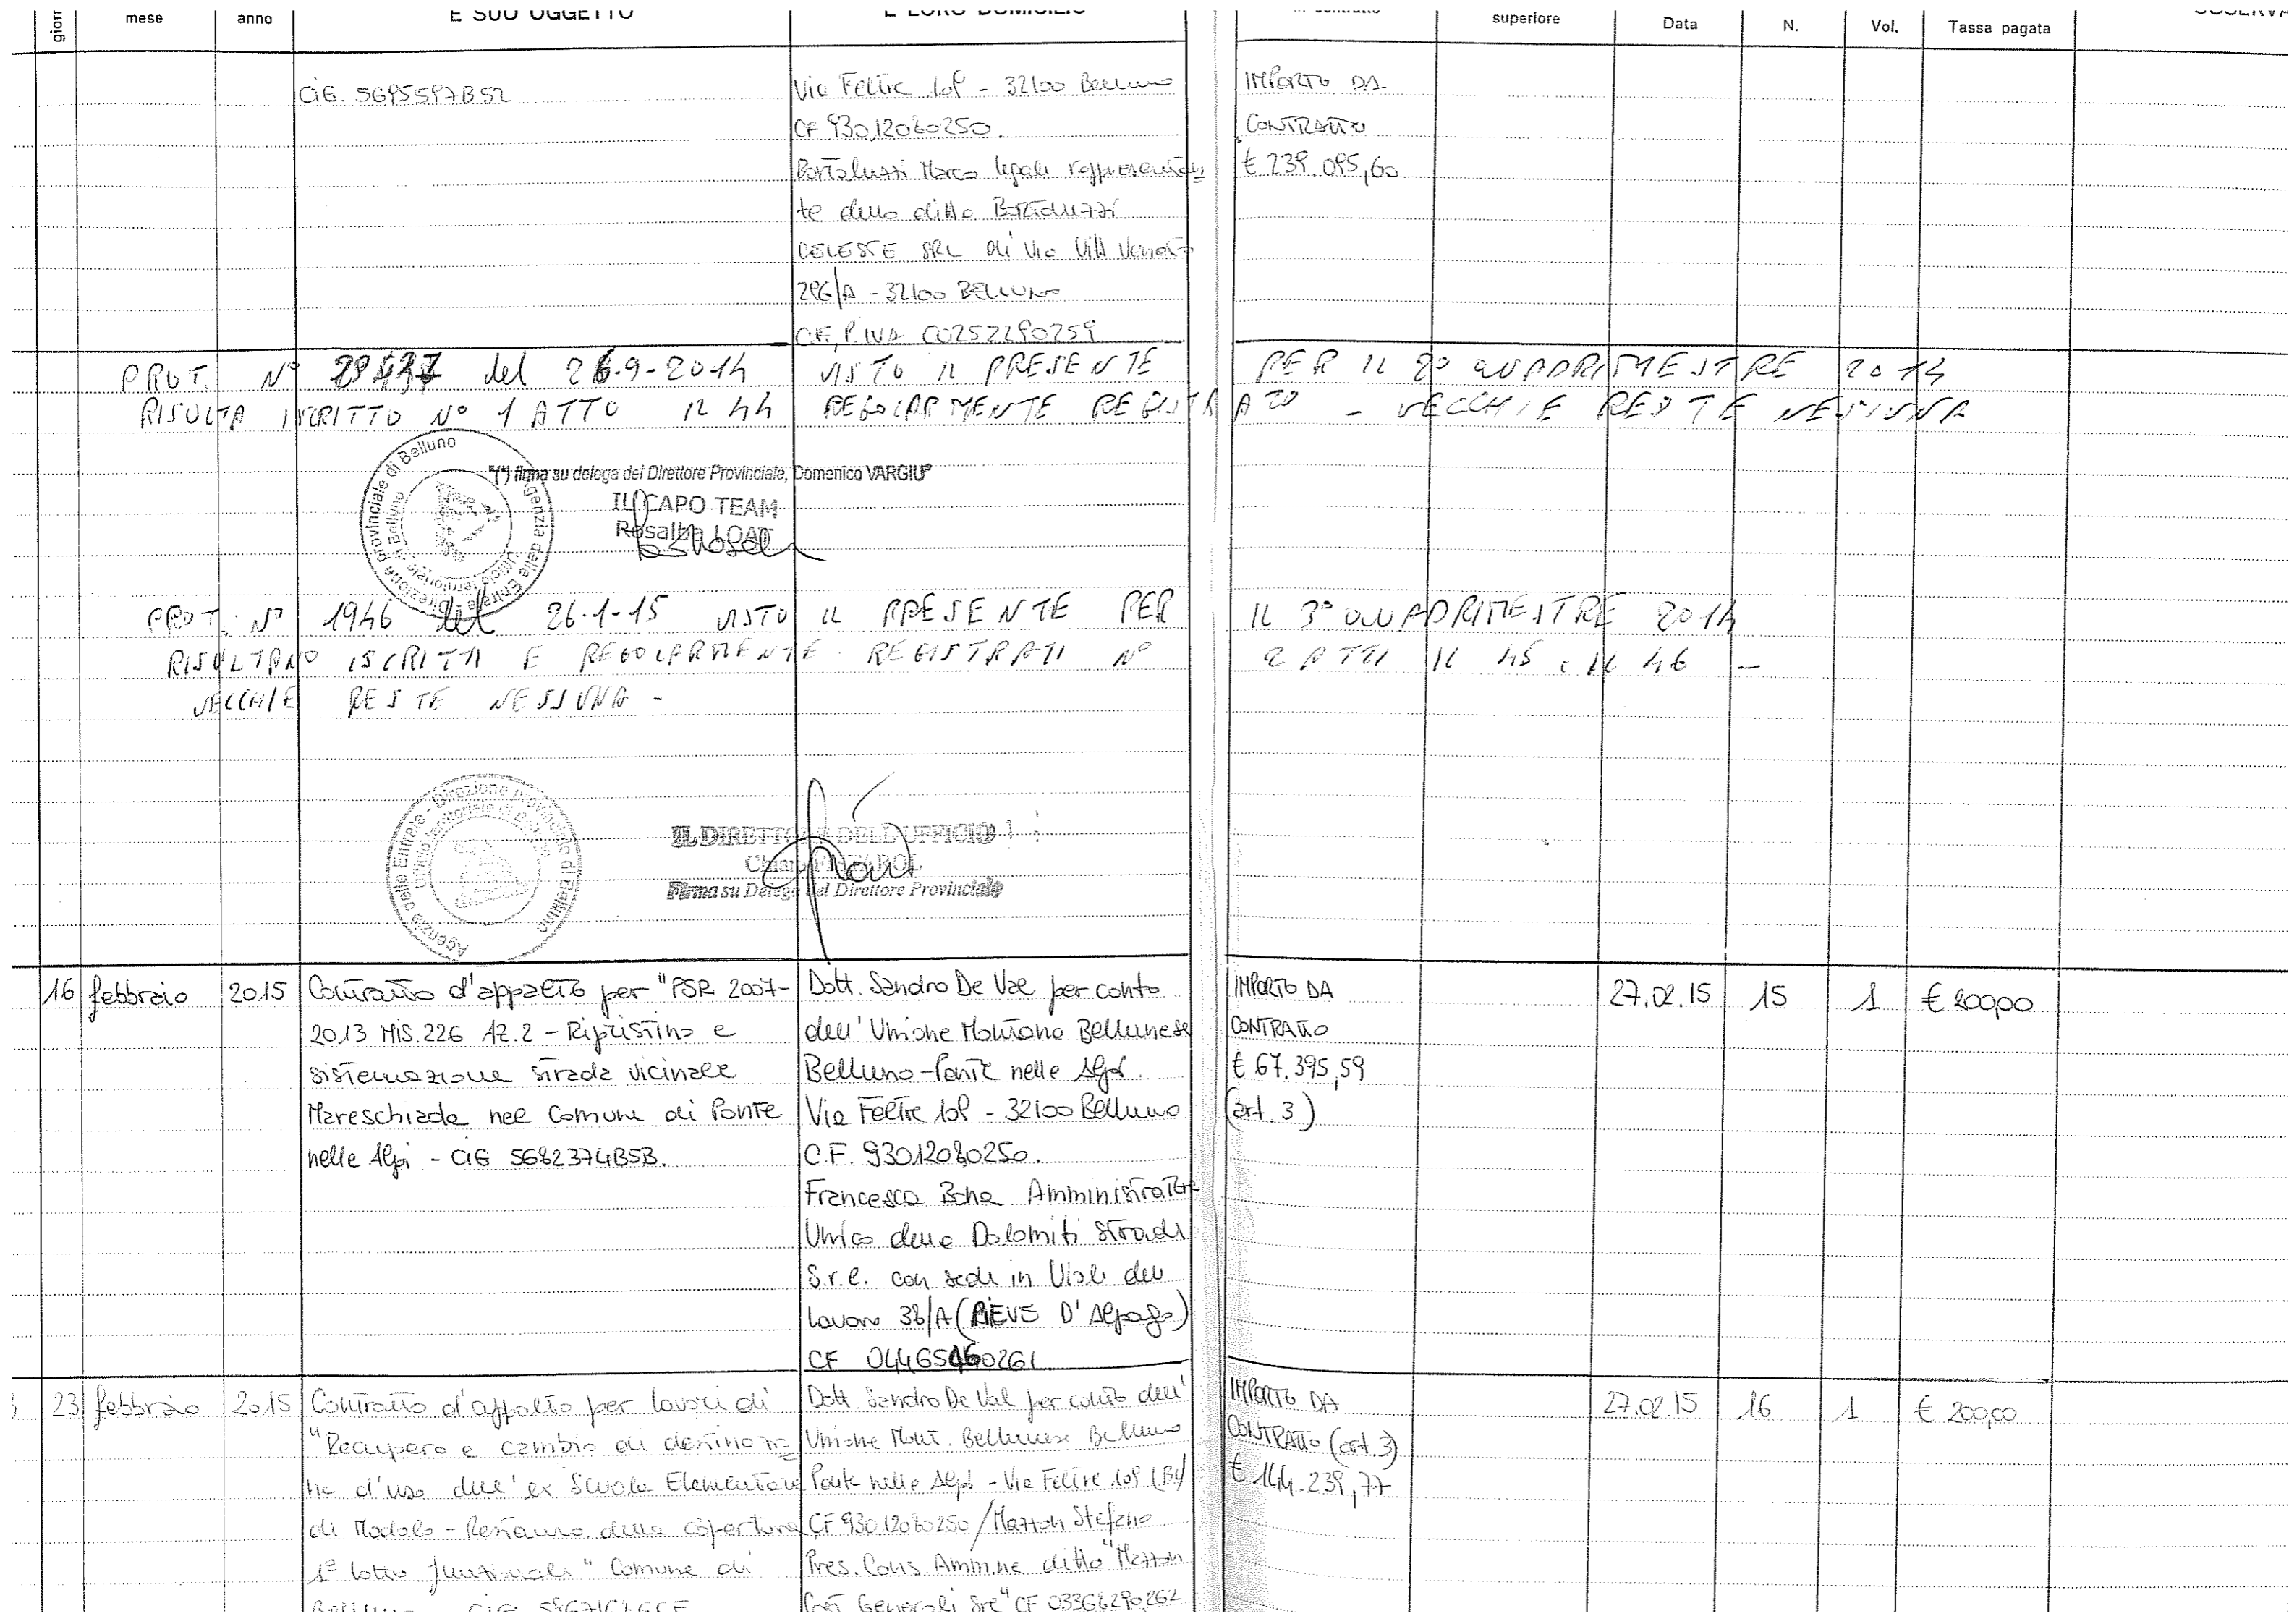 mese anno E SUO OGGETTO E LORO DOMICILIO superiore Data N. Vol. Tassa pagata
Via Feltre 109 - 32100 Belluno
CF 93012080250.
Bortoluzzi Marco legale rappresentan
te della ditta Bortoluzzi
CELESTE SRL di Via Vitt Veneto
296/A - 32100 BELLUNO
C.F., P.IVA 00252290259
IMPORTO DA
CONTRATTO
€ 239.095,60
PROT. N° del 26-9-2014 VISTO IL PRESENTE PER IL 2° QUADRIMESTRE 2014
RISULTA ISCRITTO N° 1 ATTO IL 44 REGOLARMENTE REGISTRATO - VECCHIE RESTE NESSUNA
Agenzia delle Entrate Direzione provinciale di Belluno
Ufficio territoriale di Belluno
"(*) firma su delega del Direttore Provinciale, Domenico VARGIU"
IL CAPO TEAM
Rosalba LOAT
PROT. N° 1946 del 26-1-15 VISTO IL PRESENTE PER IL 3° QUADRIMESTRE 2014
RISULTANO ISCRITTI E REGOLARMENTE REGISTRATI N° 2 ATTI IL 45 e IL 46 -
VECCHIE RESTE NESSUNA -
Agenzia delle Entrate - Direzione Provinciale di Belluno
Ufficio territoriale di Belluno
IL DIRETTORE DELL'UFFICIO
Firma su Delega del Direttore Provinciale
16 febbraio 2015
Contratto d'appalto per "PSR 2007-
2013 MIS.226 AZ.2 - Ripristino e
sistemazione strada vicinale
Mareschiade nel Comune di Ponte
nelle Alpi - CIG 5682374B5B.
Dott. Sandro De Val per conto
dell'Unione Montana Bellunese
Belluno-Ponte nelle Alpi
Via Feltre 109 - 32100 Belluno
C.F. 93012080250.
Francesca Bona Amministratore
Unico della Dolomiti Strade
S.r.l. con sede in Viale del
Lavoro 38/A (PIEVE D'Alpago)
CF 04465460261
IMPORTO DA
CONTRATTO
€ 67.395,59
(art. 3)
27.02.15 15 1 € 200,00
23 febbraio 2015
Contratto d'appalto per lavori di
"Recupero e cambio di destinazio=
ne d'uso dell'ex Scuola Elementare
di Modolo - Restauro della copertura
1° lotto funzionale" Comune di
Dott Sandro De Val per conto dell'
Unione Mont. Bellunese Belluno
Ponte nelle Alpi - Via Feltre 109 (BL)
CF 93012080250/Mazzon Stefano
Pres. Cons Amm.ne ditta "Mazzon
Generali Srl" CF
IMPORTO DA
CONTRATTO (art.3)
€ 144.239,77
27.02.15 16 1 € 200,00